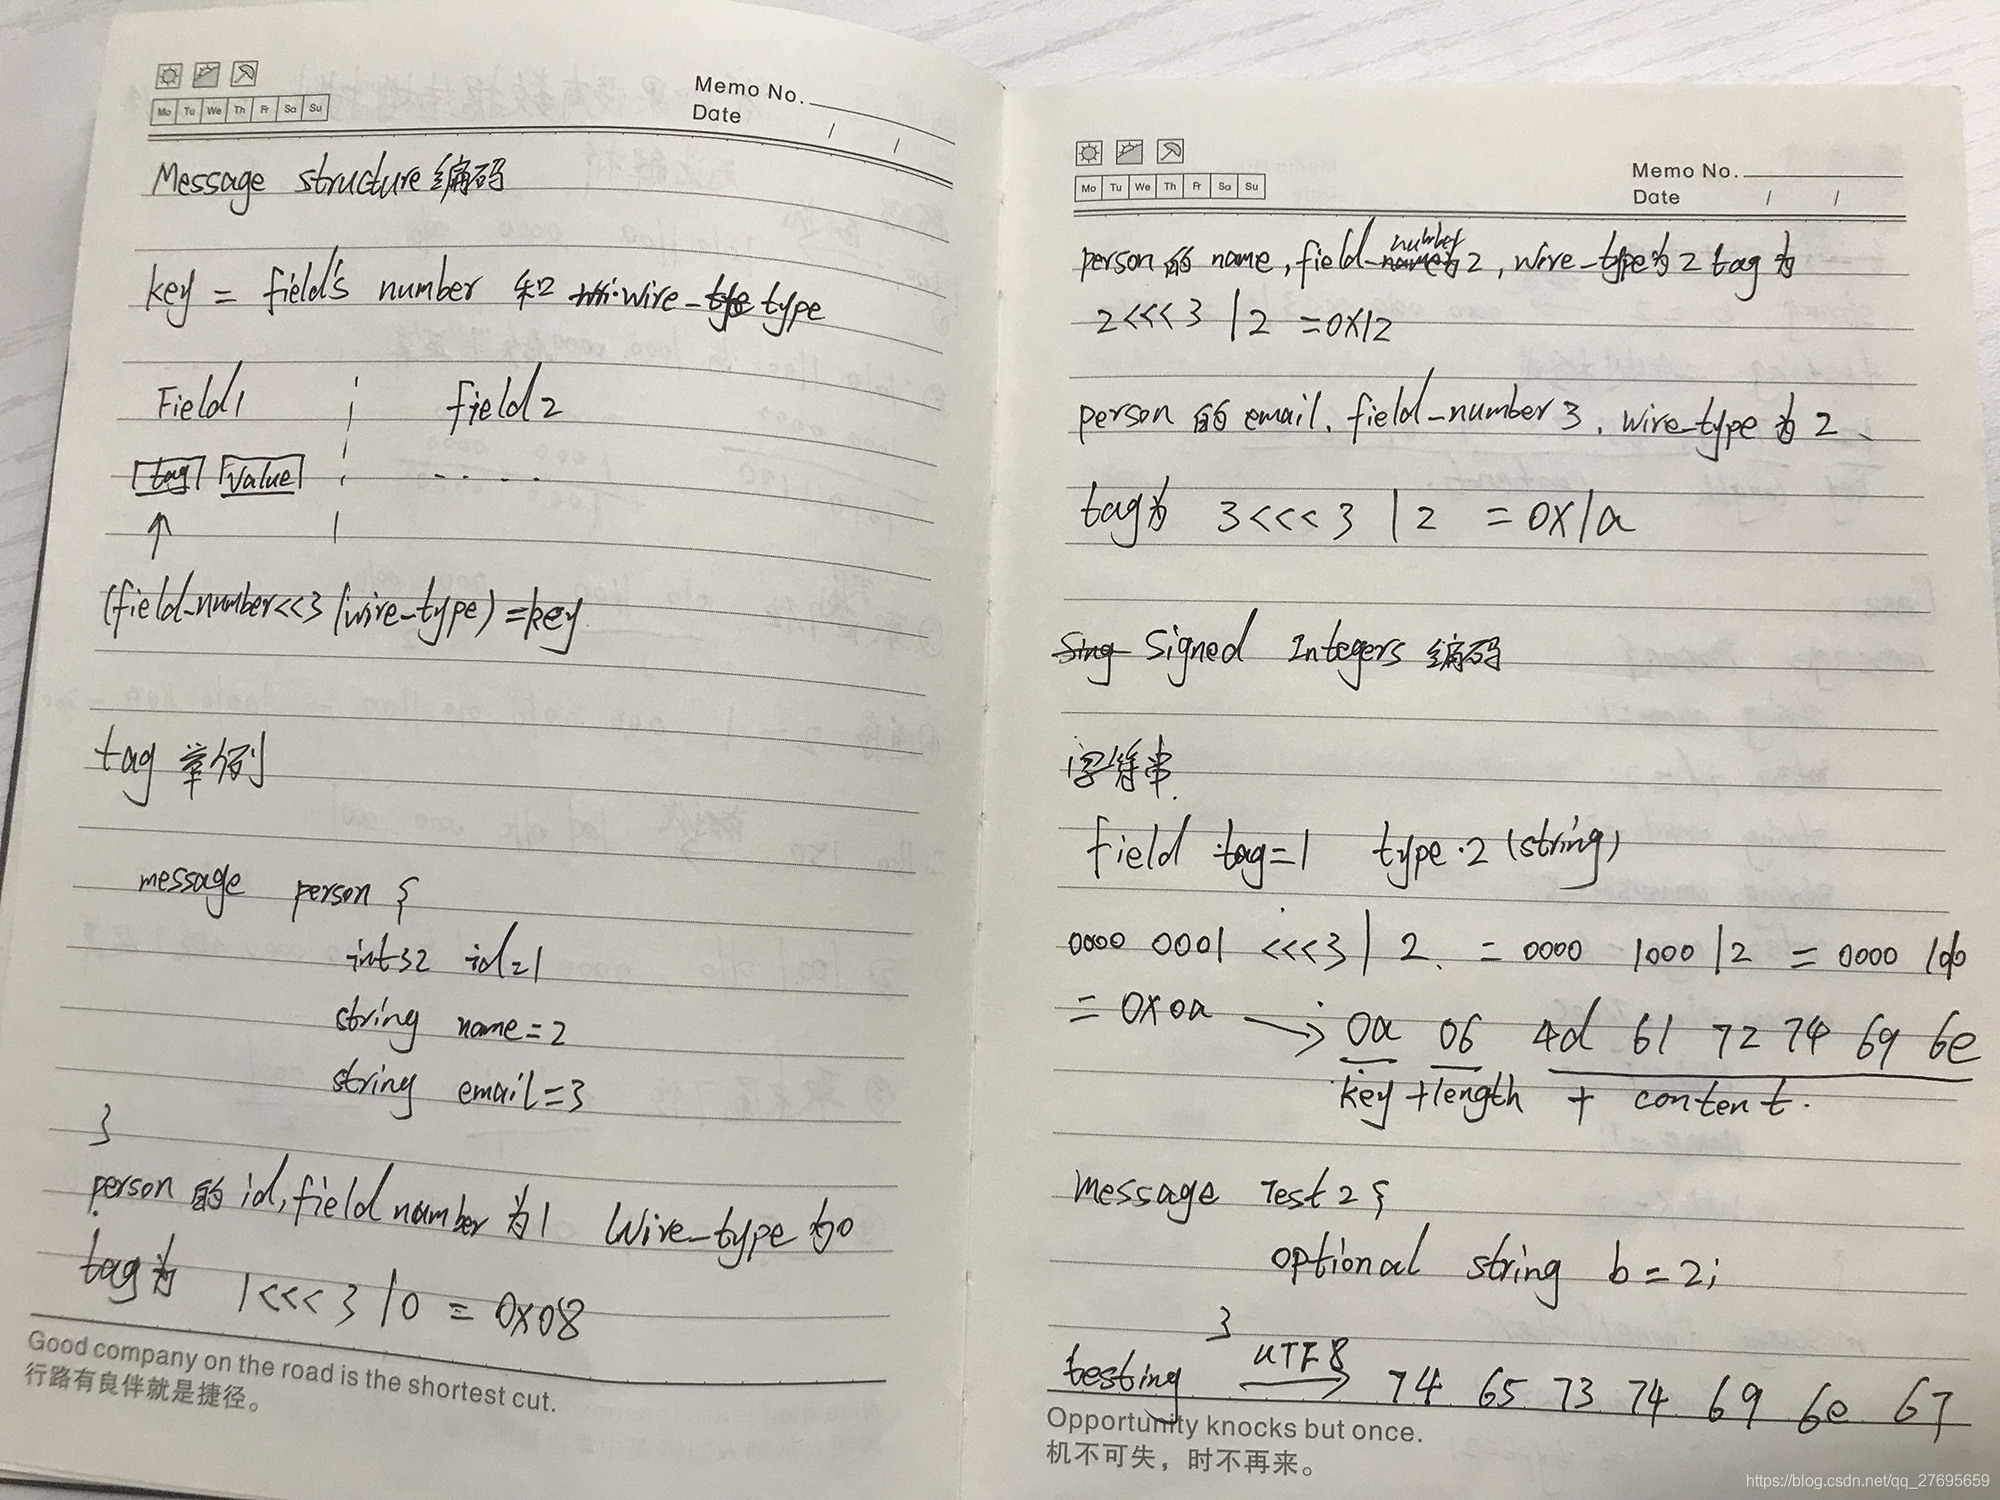 Mo Tu We Th Fr Sa Su
Memo No.
Date / /
Message structure 编码
key = field's number 和 wire_type
Field1 field2
tag value .....
(field_number<<3 | wire_type) = key
tag 举例
message person {
int32 id=1
string name=2
string email=3
}
person 的 id, field number 为 1 Wire_type 为0
tag 为 1<<<3 | 0 = 0x08
Good company on the road is the shortest cut.
行路有良伴就是捷径。
Mo Tu We Th Fr Sa Su
Memo No.
Date / /
person 的 name, field_number 2, wire_type为 2 tag 为
2<<<3 | 2 = 0X12
person 的 email. field_number 3. wire_type 为 2、
tag为 3<<<3 | 2 = 0X1a
Sing Signed Integers 编码
字符串.
field tag=1 type.2 (string)
0000 0001 <<<3 | 2. = 0000 1000 | 2 = 0000 1010
= 0X0a → 0a 06 4d 61 72 74 69 6e
key + length + content.
message Test2 {
optional string b = 2;
}
testing UTF8 → 74 65 73 74 69 6e 67
Opportunity knocks but once.
机不可失，时不再来。
https://blog.csdn.net/qq_27695659